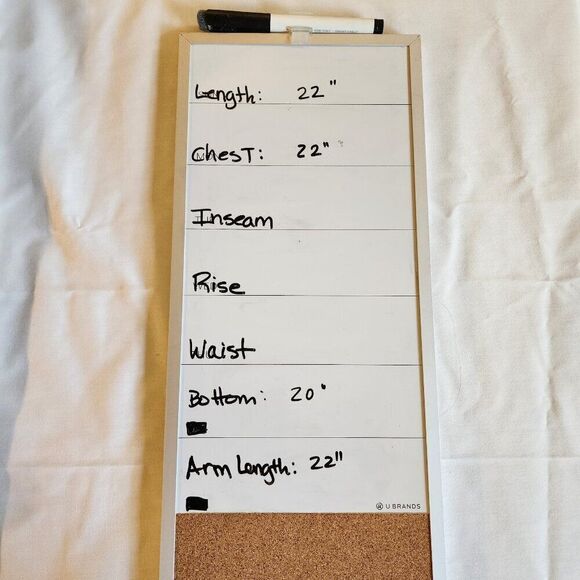 Length: 22"
ChesT: 22"
Inseam
Rise
Waist
Bottom: 20"
Arm Length: 22"
U BRANDS